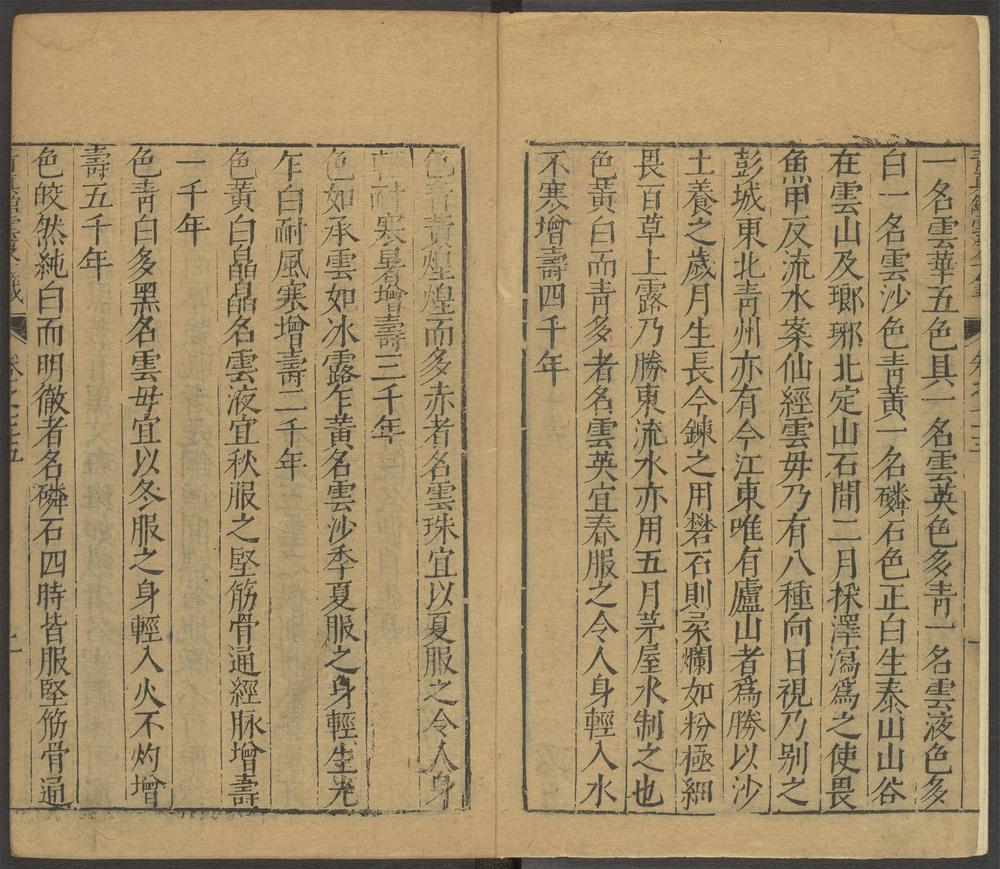 一名雲華五色具一名雲英色多青一名雲液色多
白一名雲沙色青黃一名磷石色正白生泰山山谷
在雲山及瑯琊北定山石間二月採澤瀉爲之使畏
魚甲反流水案仙經雲毋乃有八種向日視乃别之
彭城東北青州亦有今江東唯有廬山者爲勝以沙
土養之歲月生長今鍊之用礬石則柔爛如粉極細
畏百草上露乃勝東流水亦用五月茅屋水制之也
色黃白而青多者名雲英宜春服之令人身輕入水
不寒增壽四千年
色青黃煌煌而多赤者名雲珠宜以夏服之令人身
輕耐寒暑增壽三千年
色如承雲如冰露乍黃名雲沙季夏服之身輕生光
乍白耐風寒增壽二千年
色黃白晶晶名雲液宜秋服之堅筋骨通經脉增壽
一千年
色青白多黑名雲毋宜以冬服之身輕入火不灼增
壽五千年
色皎然純白而明徹者名磷石四時皆服堅筋骨通